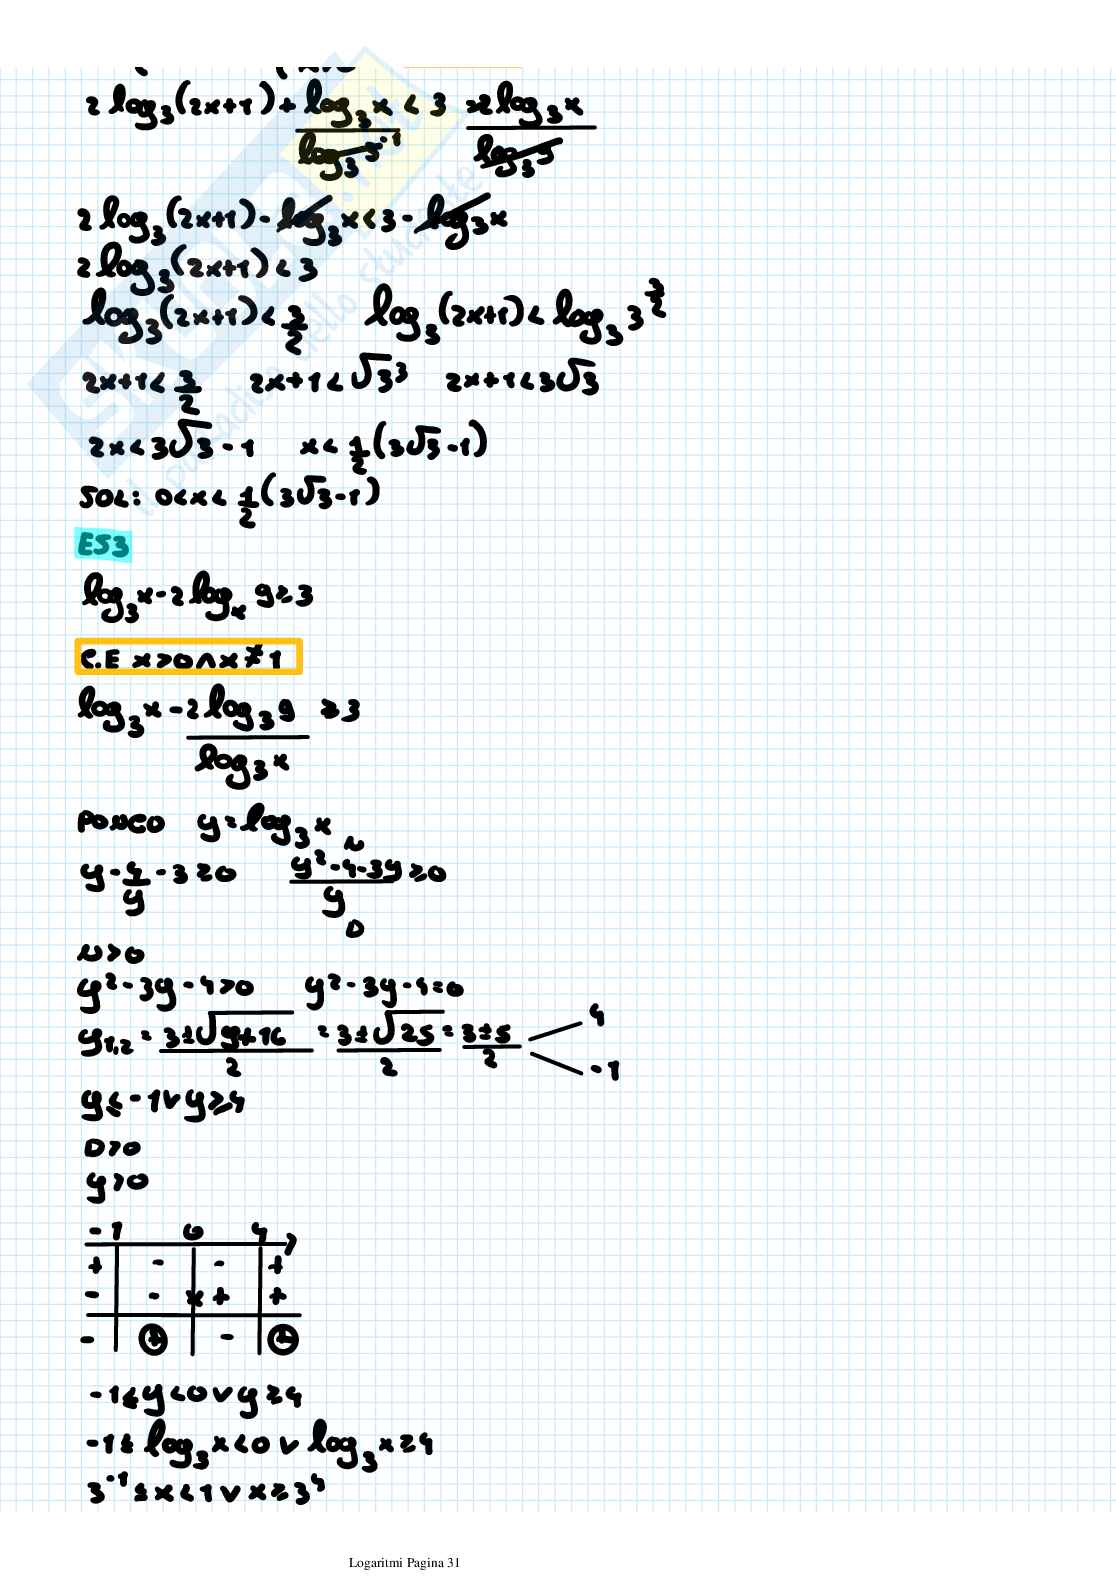 2 log₃(2x+1) + log₃x / log₃3⁻¹ < 3 - 2log₃x / log₃9
2 log₃(2x+1) - log₃x < 3 - log₃x
2 log₃(2x+1) < 3
log₃(2x+1) < 3/2 log₃(2x+1) < log₃ 3^(3/2)
2x+1 < 3/2 2x+1 < √3³ 2x+1 < 3√3
2x < 3√3 - 1 x < 1/2 (3√3 - 1)
SOL: 0 < x < 1/2 (3√3 - 1)
ES3
log₃x - 2 logₓ 9 ≥ 3
C.E x > 0 ∧ x ≠ 1
log₃x - 2 log₃9 / log₃x ≥ 3
PONGO y = log₃x
y - 4/y - 3 ≥ 0 y² - 4 - 3y / y ≥ 0
N
D
N > 0
y² - 3y - 4 > 0 y² - 3y - 4 = 0
y₁,₂ = 3±√9+16 / 2 = 3±√25 / 2 = 3±5 / 2 4
-1
y ≤ -1 ∨ y ≥ 4
D > 0
y > 0
-1 0 4
+ - - +
- - x + +
- + - +
-1 ≤ y < 0 ∨ y ≥ 4
-1 ≤ log₃x < 0 ∨ log₃x ≥ 4
3⁻¹ ≤ x < 1 ∨ x ≥ 3⁴
Logaritmi Pagina 31